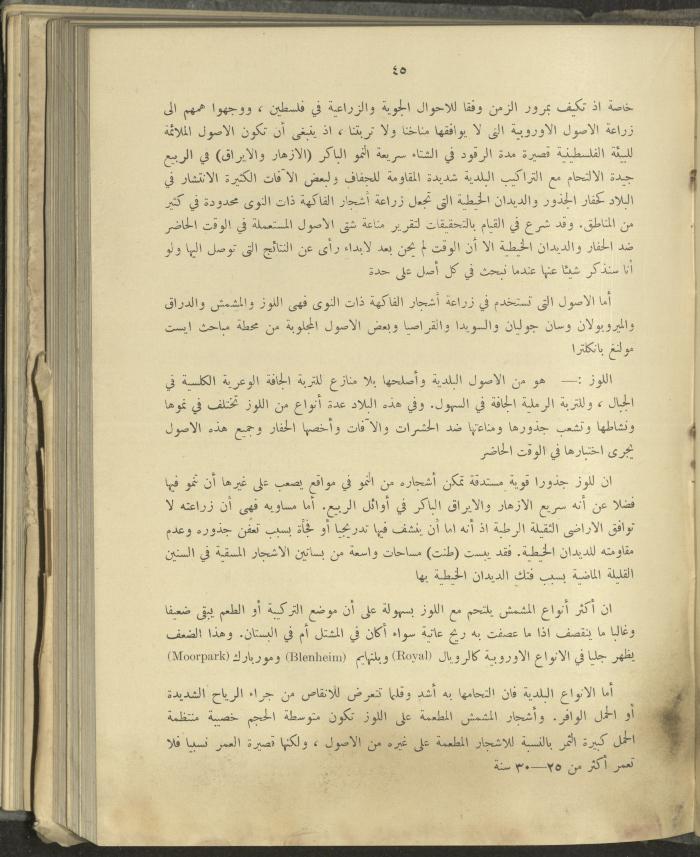 ٤٥
خاصة اذ تكيف بمرور الزمن وفقا للاحوال الجوية والزراعية في فلسطين ، ووجهوا همهم الى
زراعة الاصول الاوروبية التى لا يوافقها مناخنا ولا تربتنا ، اذ ينبغى أن تكون الاصول الملائمة
للبيئة الفلسطينية قصيرة مدة الرقود في الشتاء سريعة النمو الباكر (الازهار والايراق) في الربيع
جيدة الالتحام مع التراكيب البلدية شديدة المقاومة للجفاف ولبعض الآفات الكثيرة الانتشار في
البلاد كحفار الجذور والديدان الخيطية التى تجعل زراعة أشجار الفاكهة ذات النوى محدودة في كثير
من المناطق. وقد شرع في القيام بالتحقيقات لتقرير مناعة شتى الاصول المستعملة في الوقت الحاضر
ضد الحفار والديدان الخيطية الا أن الوقت لم يحن بعد لابداء رأى عن النتائج التى توصل اليها ولو
أنا سنذكر شيئا عنها عندما نبحث في كل أصل على حدة
أما الاصول التى تستخدم في زراعة أشجار الفاكهة ذات النوى فهى اللوز والمشمش والدراق
والميروبولان وسان جوليان والسويدا والقراصيا وبعض الاصول المجلوبة من محطة مباحث ايست
مولنغ بانكلترا
اللوز :— هو من الاصول البلدية وأصلحها بلا منازع للتربة الجافة الوعرية الكلسية في
الجبال ، وللتربة الرملية الجافة في السهول. وفي هذه البلاد عدة أنواع من اللوز تختلف في نموها
ونشاطها وتشعب جذورها ومناعتها ضد الحشرات والآفات وأخصها الحفار وجميع هذه الاصول
يجرى اختبارها في الوقت الحاضر
ان للوز جذورا قوية مستدقة تمكن أشجاره من النمو في مواقع يصعب على غيرها أن تنمو فيها
فضلا عن أنه سريع الازهار والايراق الباكر في أوائل الربيع. أما مساويه فهى أن زراعته لا
توافق الاراضى الثقيلة الرطبة اذ أنه اما أن ينشف فيها تدريجيا أو فجأة بسبب تعفن جذوره وعدم
مقاومته للديدان الخيطية. فقد يبست (طنت) مساحات واسعة من بساتين الاشجار المسقية في السنين
القليلة الماضية بسبب فتك الديدان الخيطية بها
ان أكثر أنواع المشمش يلتحم مع اللوز بسهولة على أن موضع التركيبة أو الطعم يبقى ضعيفا
وغالبا ما ينقصف اذا ما عصفت به ريح عاتية سواء أكان في المشتل أم في البستان. وهذا الضعف
يظهر جليا في الانواع الاوروبية كالرويال (Royal) وبلنهايم (Blenheim) وموربارك (Moorpark)
أما الانواع البلدية فان التحامها به أشد وقلما تتعرض للانقاص من جراء الرياح الشديدة
أو الحمل الوافر. وأشجار المشمش المطعمة على اللوز تكون متوسطة الحجم خصيبة منتظمة
الحمل كبيرة الثمر بالنسبة للاشجار المطعمة على غيره من الاصول ، ولكنها قصيرة العمر نسبيا فلا
تعمر أكثر من ٢٥—٣٠ سنة